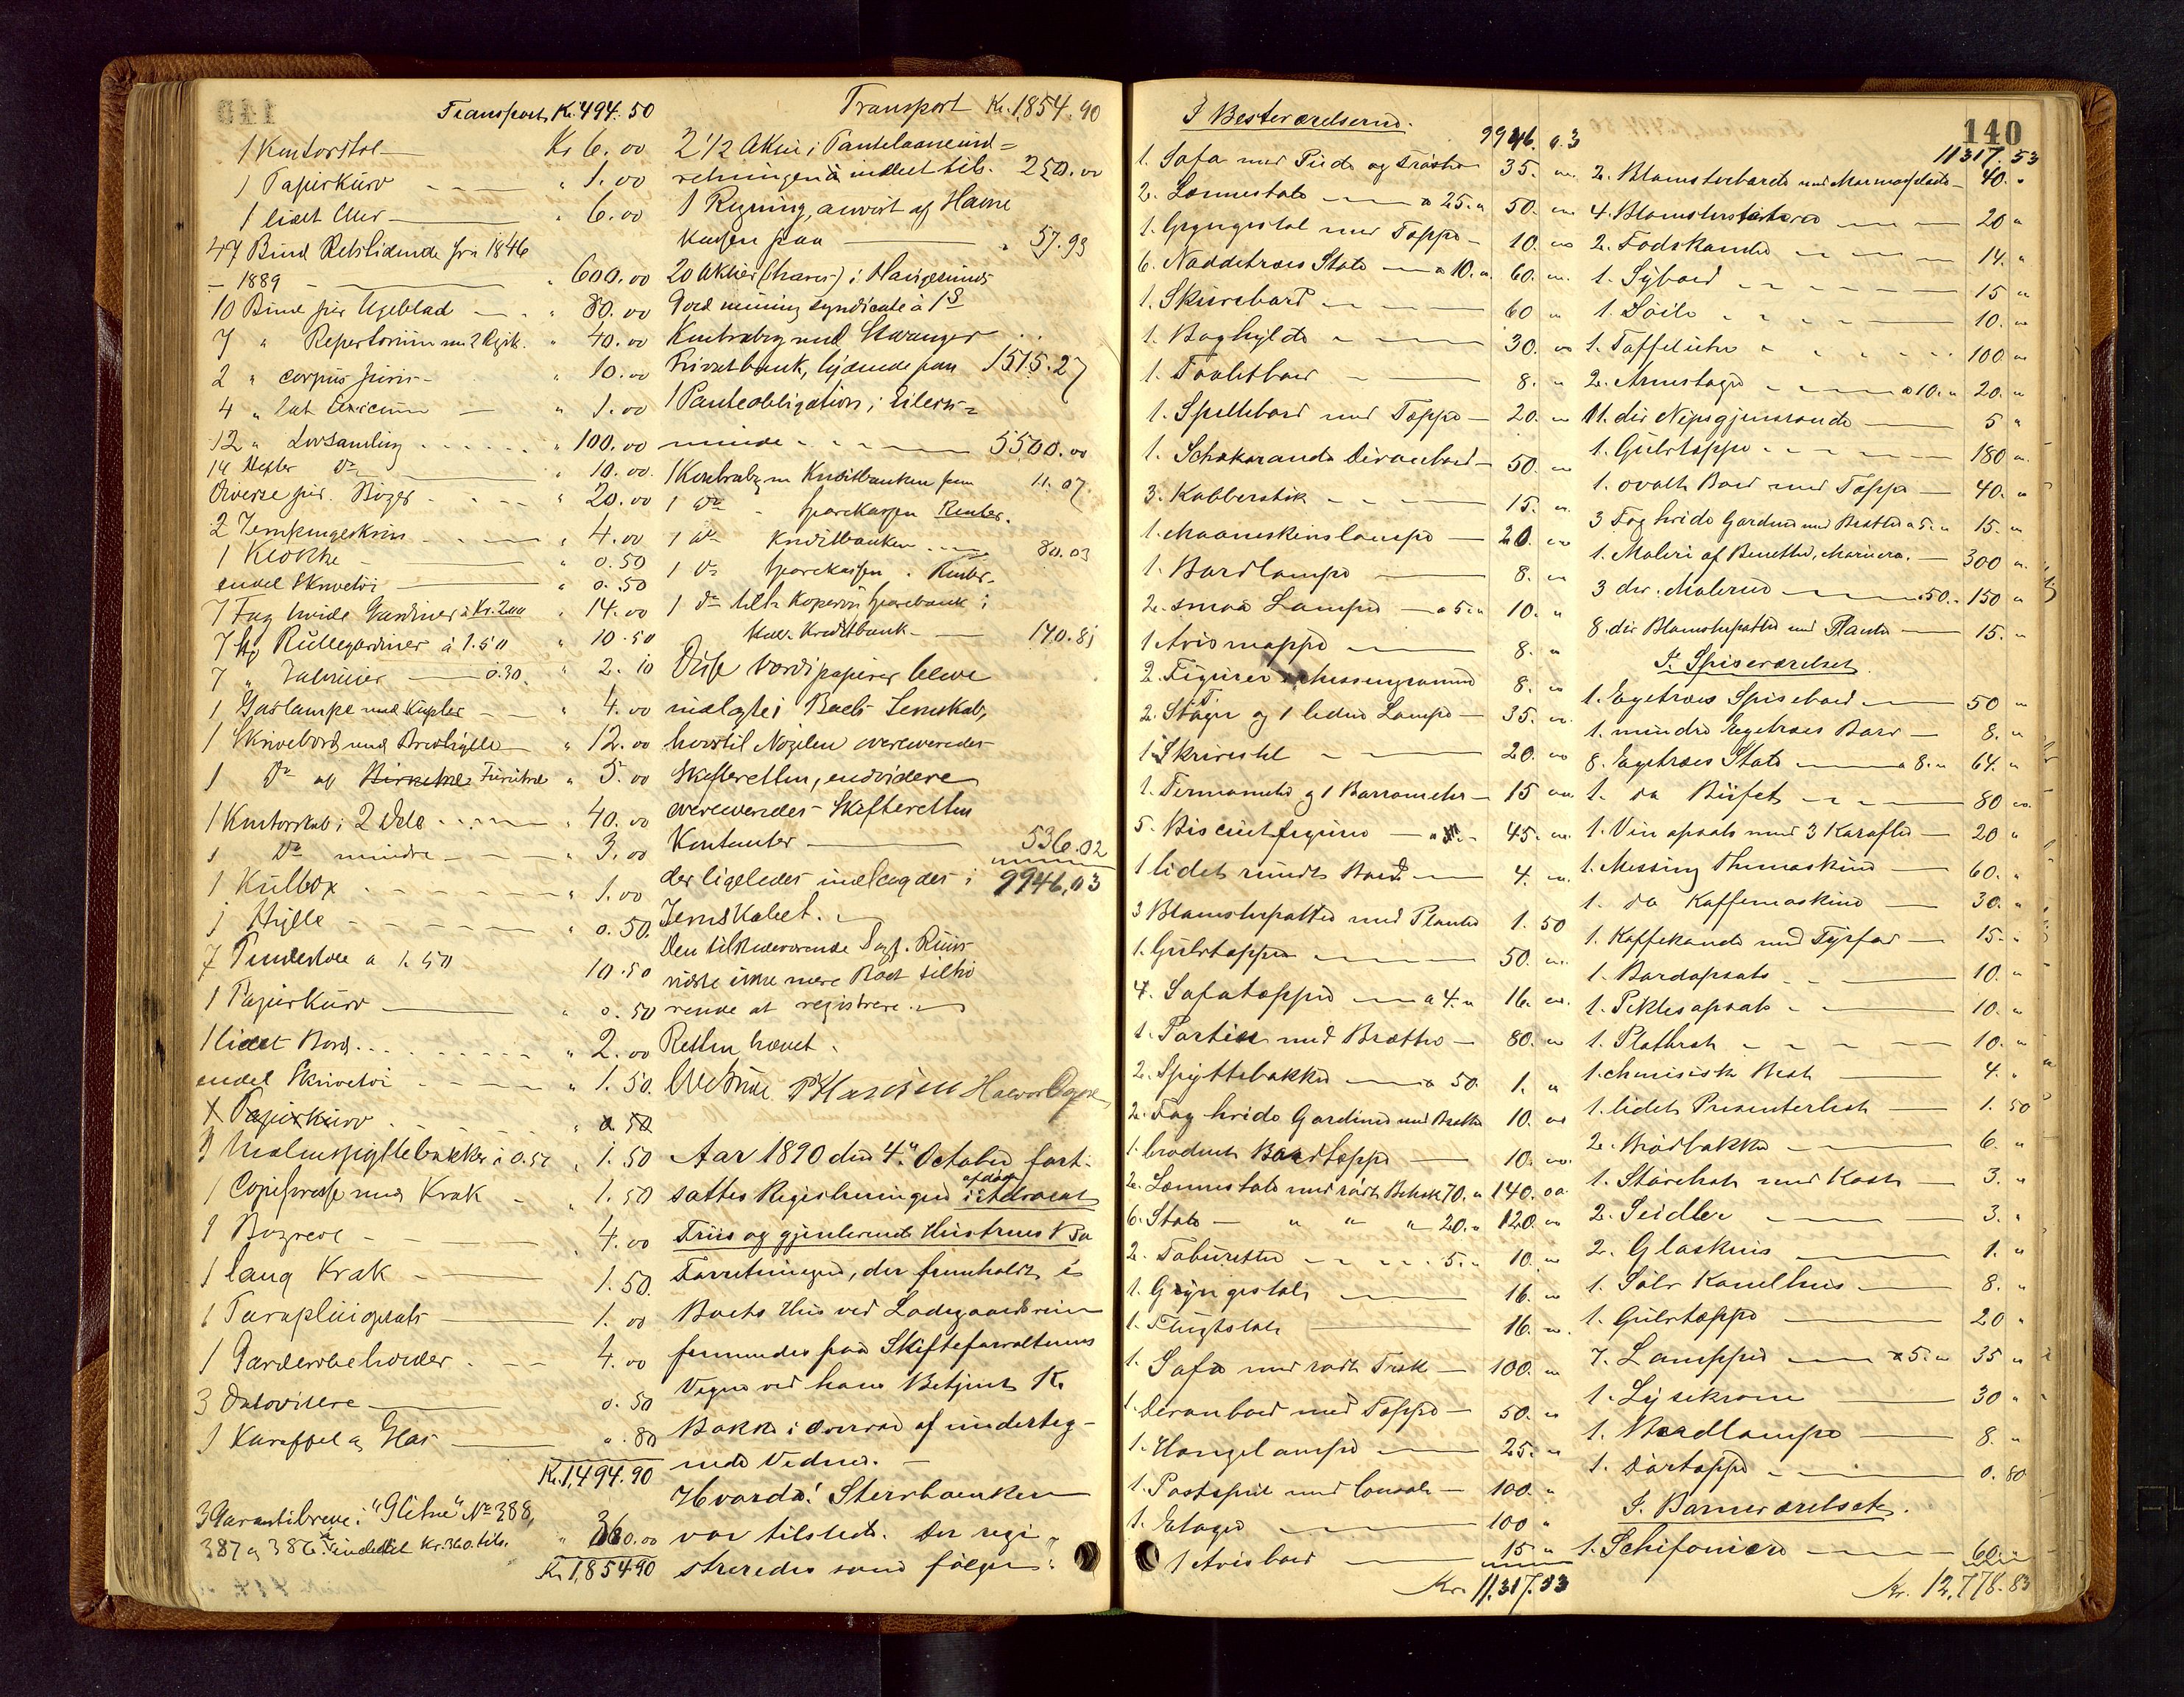 Transport Kr. 494. 50
1 Kontorstol Kr 6. 00
1 Papirkurv " 1. 00
1 lidet Uhr " 6. 00
47 Bind Retstidende fra 1846
- 1889 " 600. 00
10 Bind jur Ugeblad " 80. 00
7 " Repertorium " 40. 00
2 " corpus juris " 10. 00
4 " " 1. 00
12 " Lovsamling " 100. 00
14 Hefter do " 10. 00
Diverse jur. Bøger " 20. 00
2 Jernpengeskrin " 4. 00
1 Klokke " 0. 50
endel Skrivetøi " 0. 50
7 Fag hvide Gardiner à Kr. 2.00 " 14. 00
7 Rullegardiner à 1.50 " 10. 50
7 " 0.30. " 2. 10
1 Gaslampe med Kupler " 4. 00
1 Skrivebord med Brevhylle " 12. 00
1 do af Birketræ Furutræ " 5. 00
1 Kontorskab i 2 Dele " 40. 00
1 do mindre " 3. 00
1 Kulbox " 1. 00
1 Hylle " 0. 50
7 Pindestole a 1. 50 10. 50
1 Papirkurv " 0. 50
1 lidet Bord " 2. 00
endel Skrivetøi " 1. 50.
1 Papirkurv " 0. 50
3 Malmspyttebakker à 0.50 " 1. 50
1 Copipresse med Krak " 1. 50
1 Bogreol 4. 00
1 lang Krak 1. 50.
1 Paraplui 1. 00
1 Garderobeholder 4. 00
3 Datovisere 0. 50
1 Karaffel og Glas ". 80
Kr. 1,494. 90
3 Garantibreve i "Glitne" No 388,
387 og 386 Kr. 360. tils. " 360. 00
Kr. 1,854.90
Transport Kr. 1,854. 90
2 1/2 Aktie i Pantelaaneind=
retningen à tils. 250. 00
1 Regning, anvist af Havne
Kassen paa " 57. 93
20 Aktier (Shares) i Haugesunds
Gold mining syndicate à 1 £
Kontrabog med Stavanger
Privatbank, lydende paa 1515. 27
1 Panteobligation i Eilers=
minde 5500. 00
1 Kontrabog m Kreditbanken paa 11. 07
1 do - Sparekassen Renter.
1 do Kreditbanken 80. 03
1 do Sparekassen. Renter.
1 do tilh Kopervik Sparebank i
Kreditbank 140. 81
Disse Værdipapirer bleve
indlagte i Boets Jernskab,
hvortil Nøglen overleveredes
Skifteretten, endvidere
overleveredes Skifteretten
Kontanter 536.02
der ligeledes indlagdes i 9946,03
Jernskabet.
Den tilstedeværende
vidste ikke mere Boet tilhø
rende at registrere.
Retten hævet.
Aar 1890 den 4. October fort-
sattes Registreringen i afdøde Advocat
Friis og gjenlevende Hustrues Bo
Forretningen, der fremholdtes i
Boets Hus ved Ladegaardsveien
fremmedes paa Skifteforvalterens
Vegne ved hans Betjent K.
Bakke i Overvær af underteg-
nede Vidner.
Hvorda! Sterboenken
var tilstede. Der regi-
streredes som følger:
I Besteværelserne.
9946. 03
1. Sofa med Pude og 35. 00
2. Lænestole a 25. " 50. 00
1. Gyngestol med Teppe 10. 00
6. Nøddetræes Stole a 10. " 60. 00
1. Skrivebord 60 "
1. Boghylde 30. 00
1. Toiletbord 8. "
1. Spillebord med Teppe 20. 00
1. Schakerande Divanbord 50. 00
3. Kobberstik 15. 00
1. Maaneskinslampe 20. 00
1. Bordlampe 8. 00
2. smaa Lamper a 5. " 10. "
1 Avismappe 8. "
2. Figurer i Messingramme 8. 00
2. Stager og 1 liden Lampe 35. 00
1 Skrivestol 20. 00
1. Termometer og 1 Barrometer 15 00
5. Biscuitfigurer 45. 00
1 lidet rundt Bord 4. 00
3 Blomsterpotter med Planter 1. 50
1. Gulvteppe 50. 00
4. Sofatepper a 4. " 16. 00
1. Portier med Bretter 80. 00
2. Spyttebakker a 50. 1. "
2. Fag hvide Gardiner med Bretter 10. 00
1. broderet Bordteppe 10. 00
2. Lænestole med rødt Betræk 70. " 140. 00
6. Stole " " " 20. " 120. 00
2. Taburetter 5. " 10. 00
1. Gyngestol 16. 00
1. Flugtstol 16. 00
1. Sofa med rødt Træk 100. 00
1. Divanbord med Teppe 50. 00
1. Hængelampe 25. "
1. Postspeil med Consol 100. "
1. Etager 100 "
1 Avisbord 15 "
Kr. 11,317.53
140
11317. 53
2. Blomsterborde med Marmorplade 40. "
4. Blomsterstativer 20 "
2. Fodskamler 14. "
1. Sybord 15 "
1. Søile 10. 00
1. Taffeluhr 100 00
2. Armstager a 10. " 20. 00
11. div Nipsgjenstande 5 "
1. Gulvteppe 180 00
1. ovalt Bord med Teppe 40. "
3 Fag hvide Gardiner med Bretter a 5. " 15. 00
1. Maleri af Benetter, Marinen. 300 "
3 div. Malerier a 50. 150 "
8. div Blomsterpotter med Planter 15. "
I. Spiseværelset
1. Egetræes Spisebord 50 "
1. mindre Egetræes Bord 8. "
8. Egetræes Stole a 8. " 64. "
1. do Buffet 80 00
1. Vin opsats med 3 Karafler 20 "
1. Messing Themaskine 60. "
1. do Kaffemaskine 30. "
1. Kaffekande med Typfad 15. "
1. Bordopsats 10. "
1. Piklesopsats 10. "
1. Platbræt 10. "
1. chinisisk Bret 4. "
1. lidet Presenterbret 1. 50
2. Brødbakker 6. "
1. Støvebræt med Kost 3. "
2. Seidler 3. "
2. Glaskrus 1. "
1. Sølv Kanelhus 8. "
1. Gulvteppe 20 "
7. Lampper a 5. " 35 "
1. Lysekrone 30 "
1. Bordlampe 8. "
1. Dørteppe 0. 80
I. Barneværelset.
1. Schifoniere 60. "
Kr. 12,778. 83